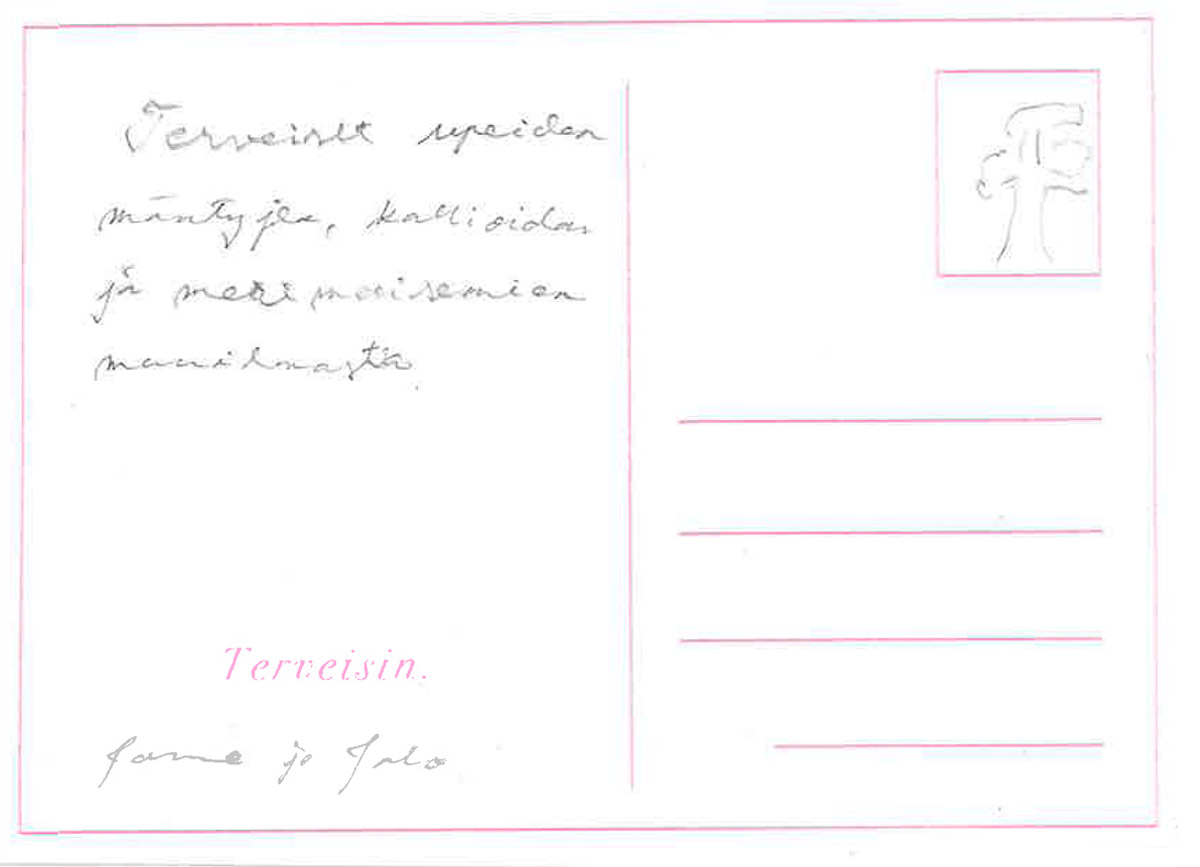 Terveiset upeiden
mäntyjen, kallioiden
ja merimaisemien
maailmasta.
Terveisin.
ja